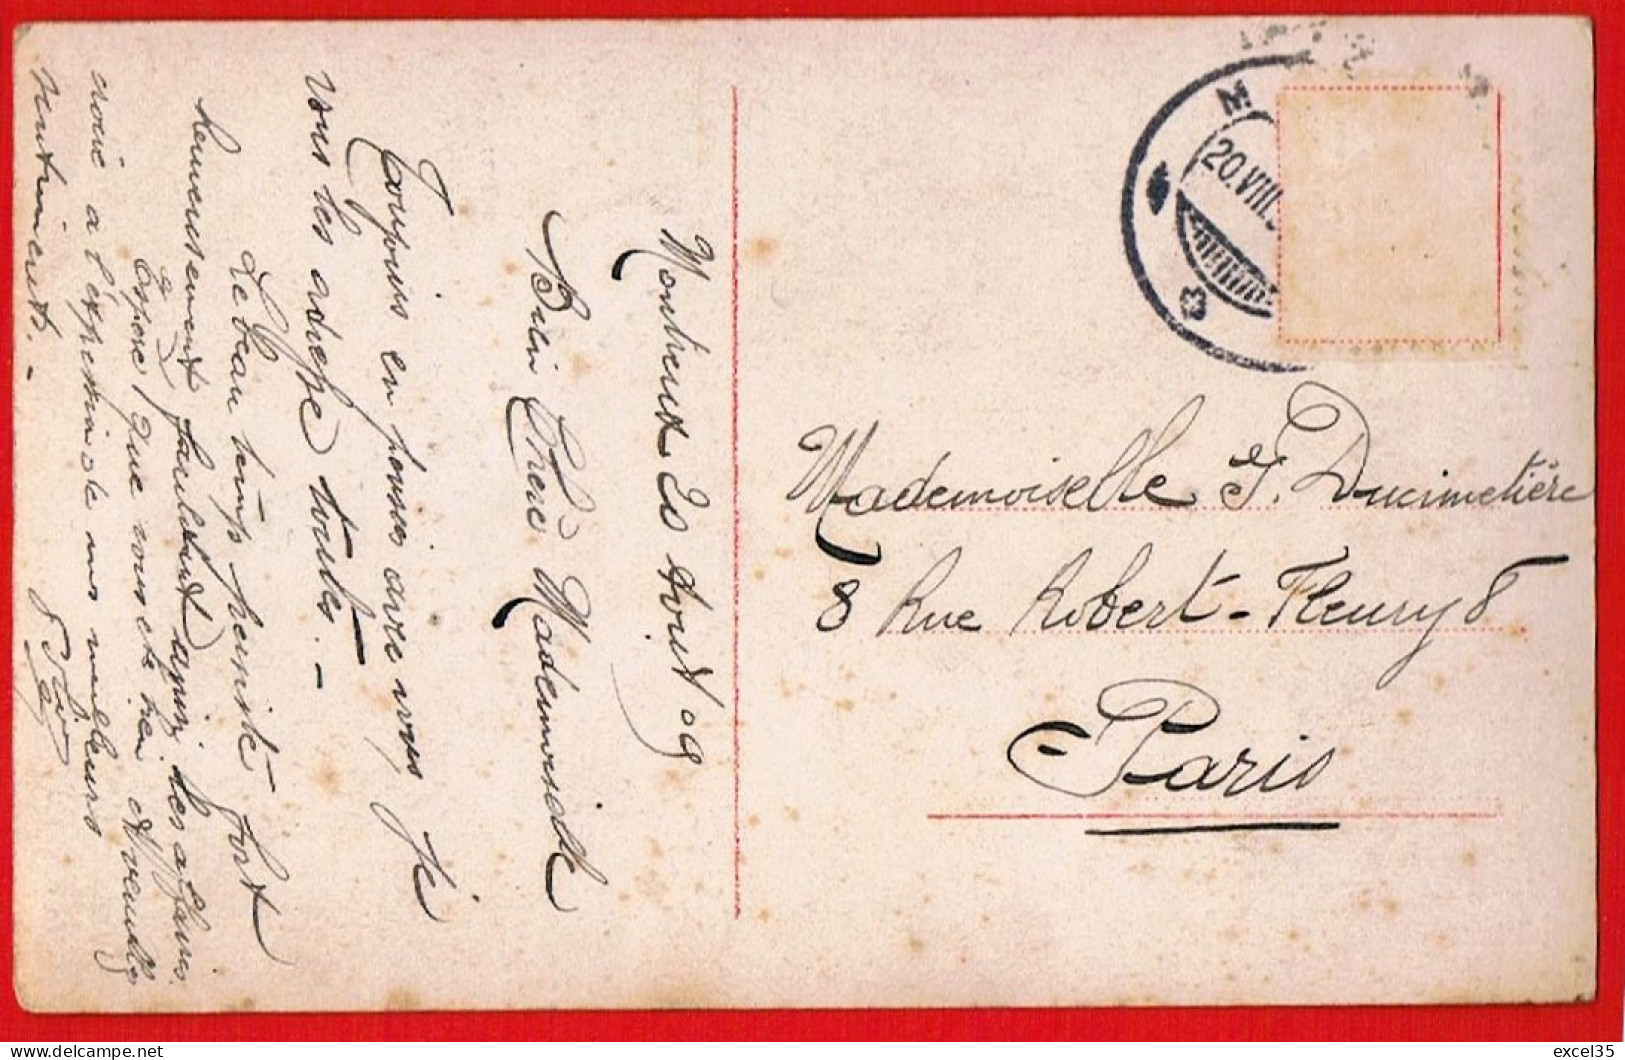 Montreux 20 Août 09
Bien Chère Mademoiselle
Toujours en pensées avec vous, je
vous les adresse toutes. -
Le beau temps persiste fort
heureusement facilitant ainsi les affaires.
Espère que vous et
croire à l'expression de mes meilleurs
sentiments. -
Mademoiselle J. Ducimetière
8 Rue Robert-Fleury 8
Paris
M
20.VIII.
excel35